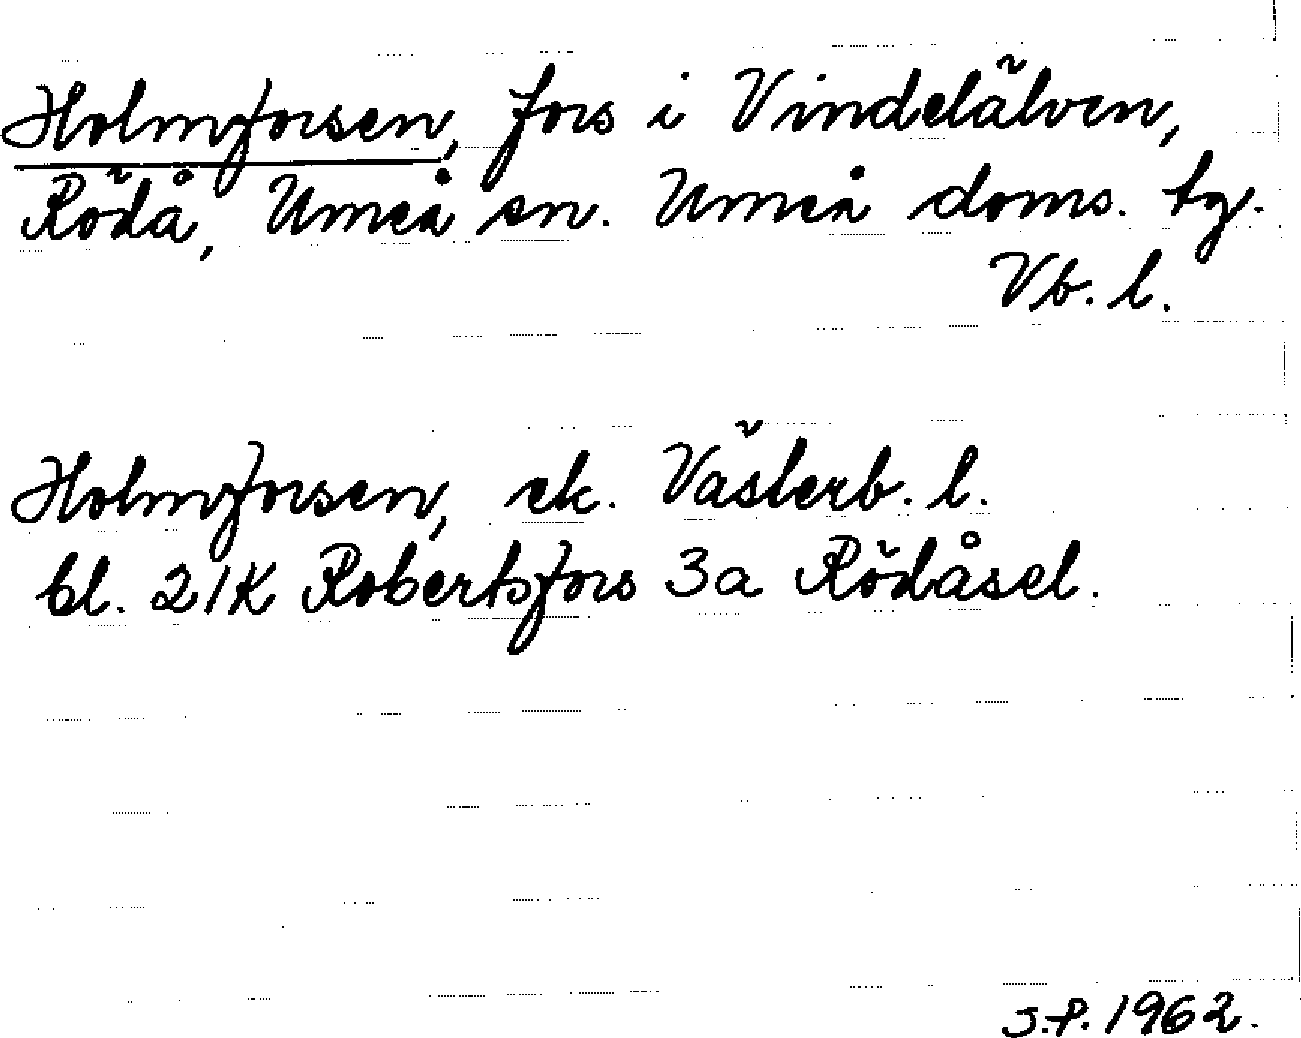 Holmforsen, fors i Vindelälven,
Rödå, Umeå sn. Umeå doms. tg.
Vb. l.
Holmforsen, ek. Västerb. l.
bl. 21K Robertsfors 3a Rödåsel.
J.P. 1962.